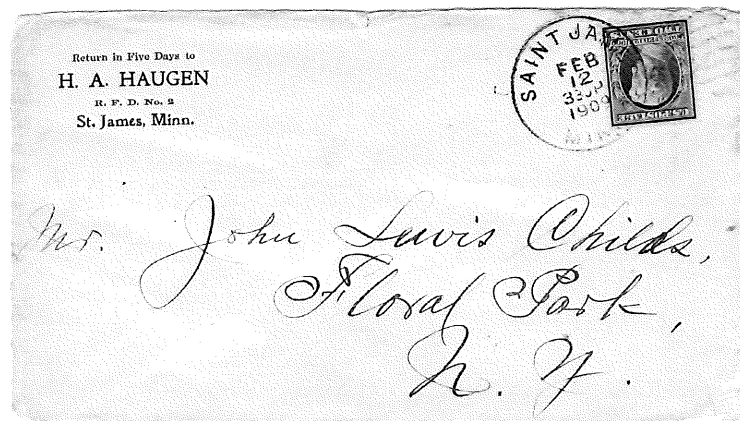 Return in Five Days to
H. A. HAUGEN
R. F. D. No. 2
St. James, Minn.
SAINT JA
FEB
12
330P
1909
MINN
Mr. John Lewis Childs,
Floral Park,
N. Y.